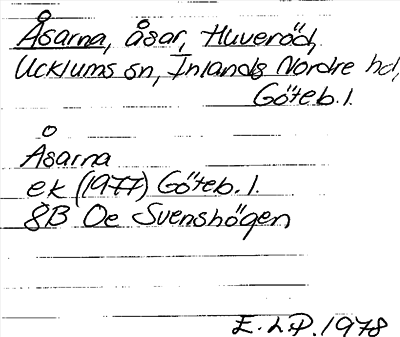 Åsarna, åsar, Huveröd,
Ucklums sn, Inlands Nordre hd,
Göteb. l.
Åsarna
ek (1977) Göteb. l.
8B Oe Svenshögen
E. LP. 1978